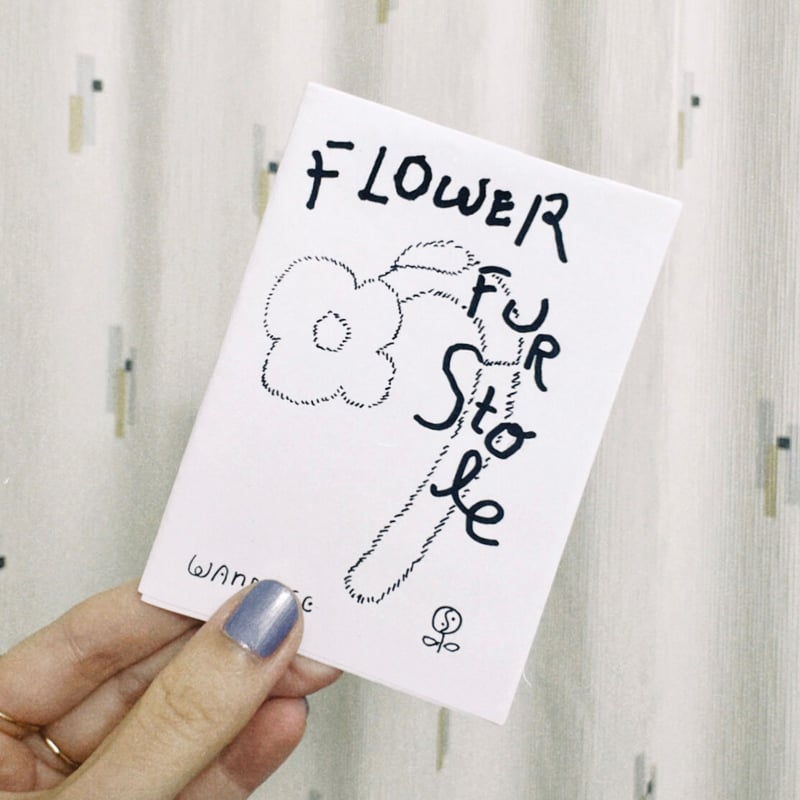 FLOWER
FUR
Stole